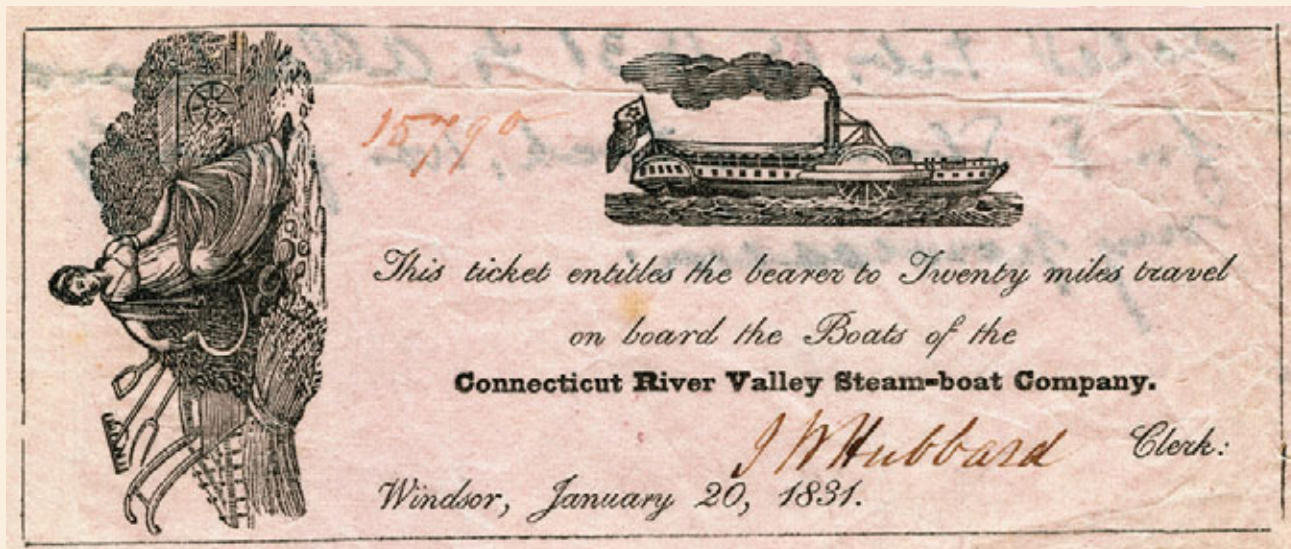 15790
This ticket entitles the bearer to Twenty miles travel
on board the Boats of the
Connecticut River Valley Steam-boat Company.
J W Hubbard Clerk:
Windsor, January 20, 1831.